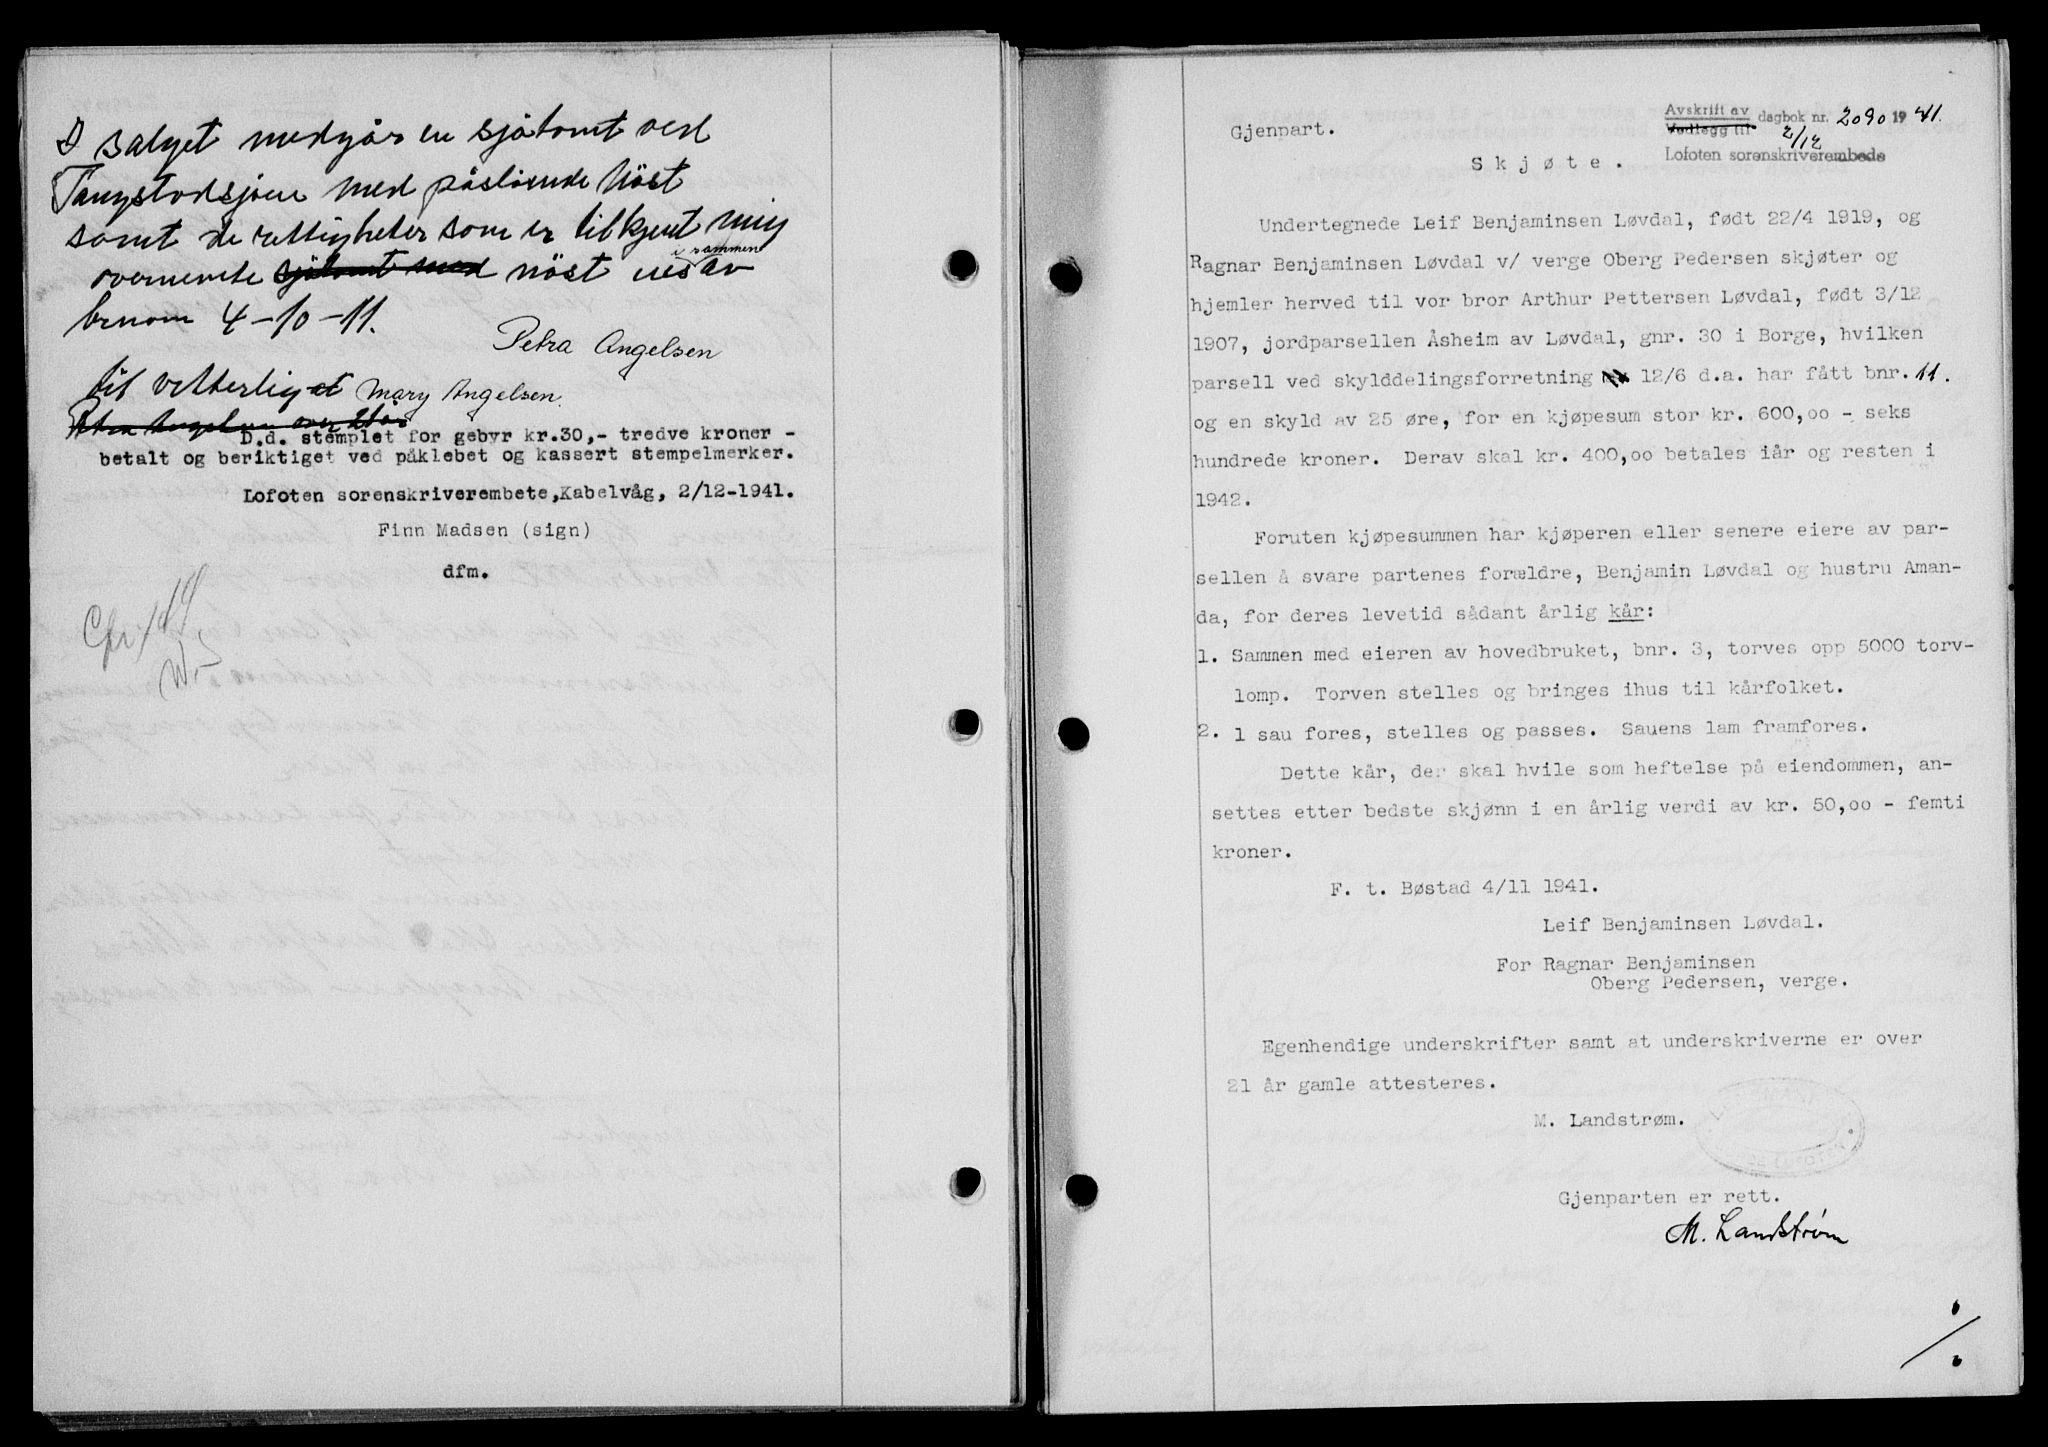 I salget medgår en sjøtomt ved
Tangstadsjøen med påstående nöst
samt de rettigheter som er tilkjent mig
i rammen
overnevnte sjøtomt med nöst av
4-10-11.
Petra Angelsen
til vitterlighet Mary Angelsen.
Petra Angelsen over 21 år
D.d. stemplet for gebyr kr.30,- tredve kroner -
betalt og beriktiget ved påklebet og kassert stempelmerker.
Lofoten sorenskriverembete,Kabelvåg, 2/12-1941.
Finn Madsen (sign)
dfm.
Gjenpart.
Avskrift av
Vedlegg til dagbok nr. 2090 1941.
2/12
Lofoten sorenskriverembede
Skjøte.
Undertegnede Leif Benjaminsen Løvdal, født 22/4 1919, og
Ragnar Benjaminsen Løvdal v/ verge Oberg Pedersen skjøter og
hjemler herved til vor bror Arthur Pettersen Løvdal, født 3/12
1907, jordparsellen Åsheim av Løvdal, gnr. 30 i Borge, hvilken
parsell ved skylddelingsforretning 12/6 d.a. har fått bnr. 11.
og en skyld av 25 øre, for en kjøpesum stor kr. 600,oo - seks
hundrede kroner. Derav skal kr. 400,oo betales iår og resten i
1942.
Foruten kjøpesummen har kjøperen eller senere eiere av par-
sellen å svare partenes forældre, Benjamin Løvdal og hustru Aman-
da, for deres levetid sådant årlig kår:
1. Sammen med eieren av hovedbruket, bnr. 3, torves opp 5000 torv-
lomp. Torven stelles og bringes ihus til kårfolket.
2. 1 sau fores, stelles og passes. Sauens lam framfores.
Dette kår, der skal hvile som heftelse på eiendommen, an-
settes etter bedste skjønn i en årlig verdi av kr. 50,oo - femti
kroner.
F. t. Bøstad 4/11 1941.
Leif Benjaminsen Løvdal.
For Ragnar Benjaminsen
Oberg Pedersen, verge.
Egenhendige underskrifter samt at underskriverne er over
21 år gamle attesteres.
M. Landstrøm.
Gjenparten er rett.
M. Landstrøm